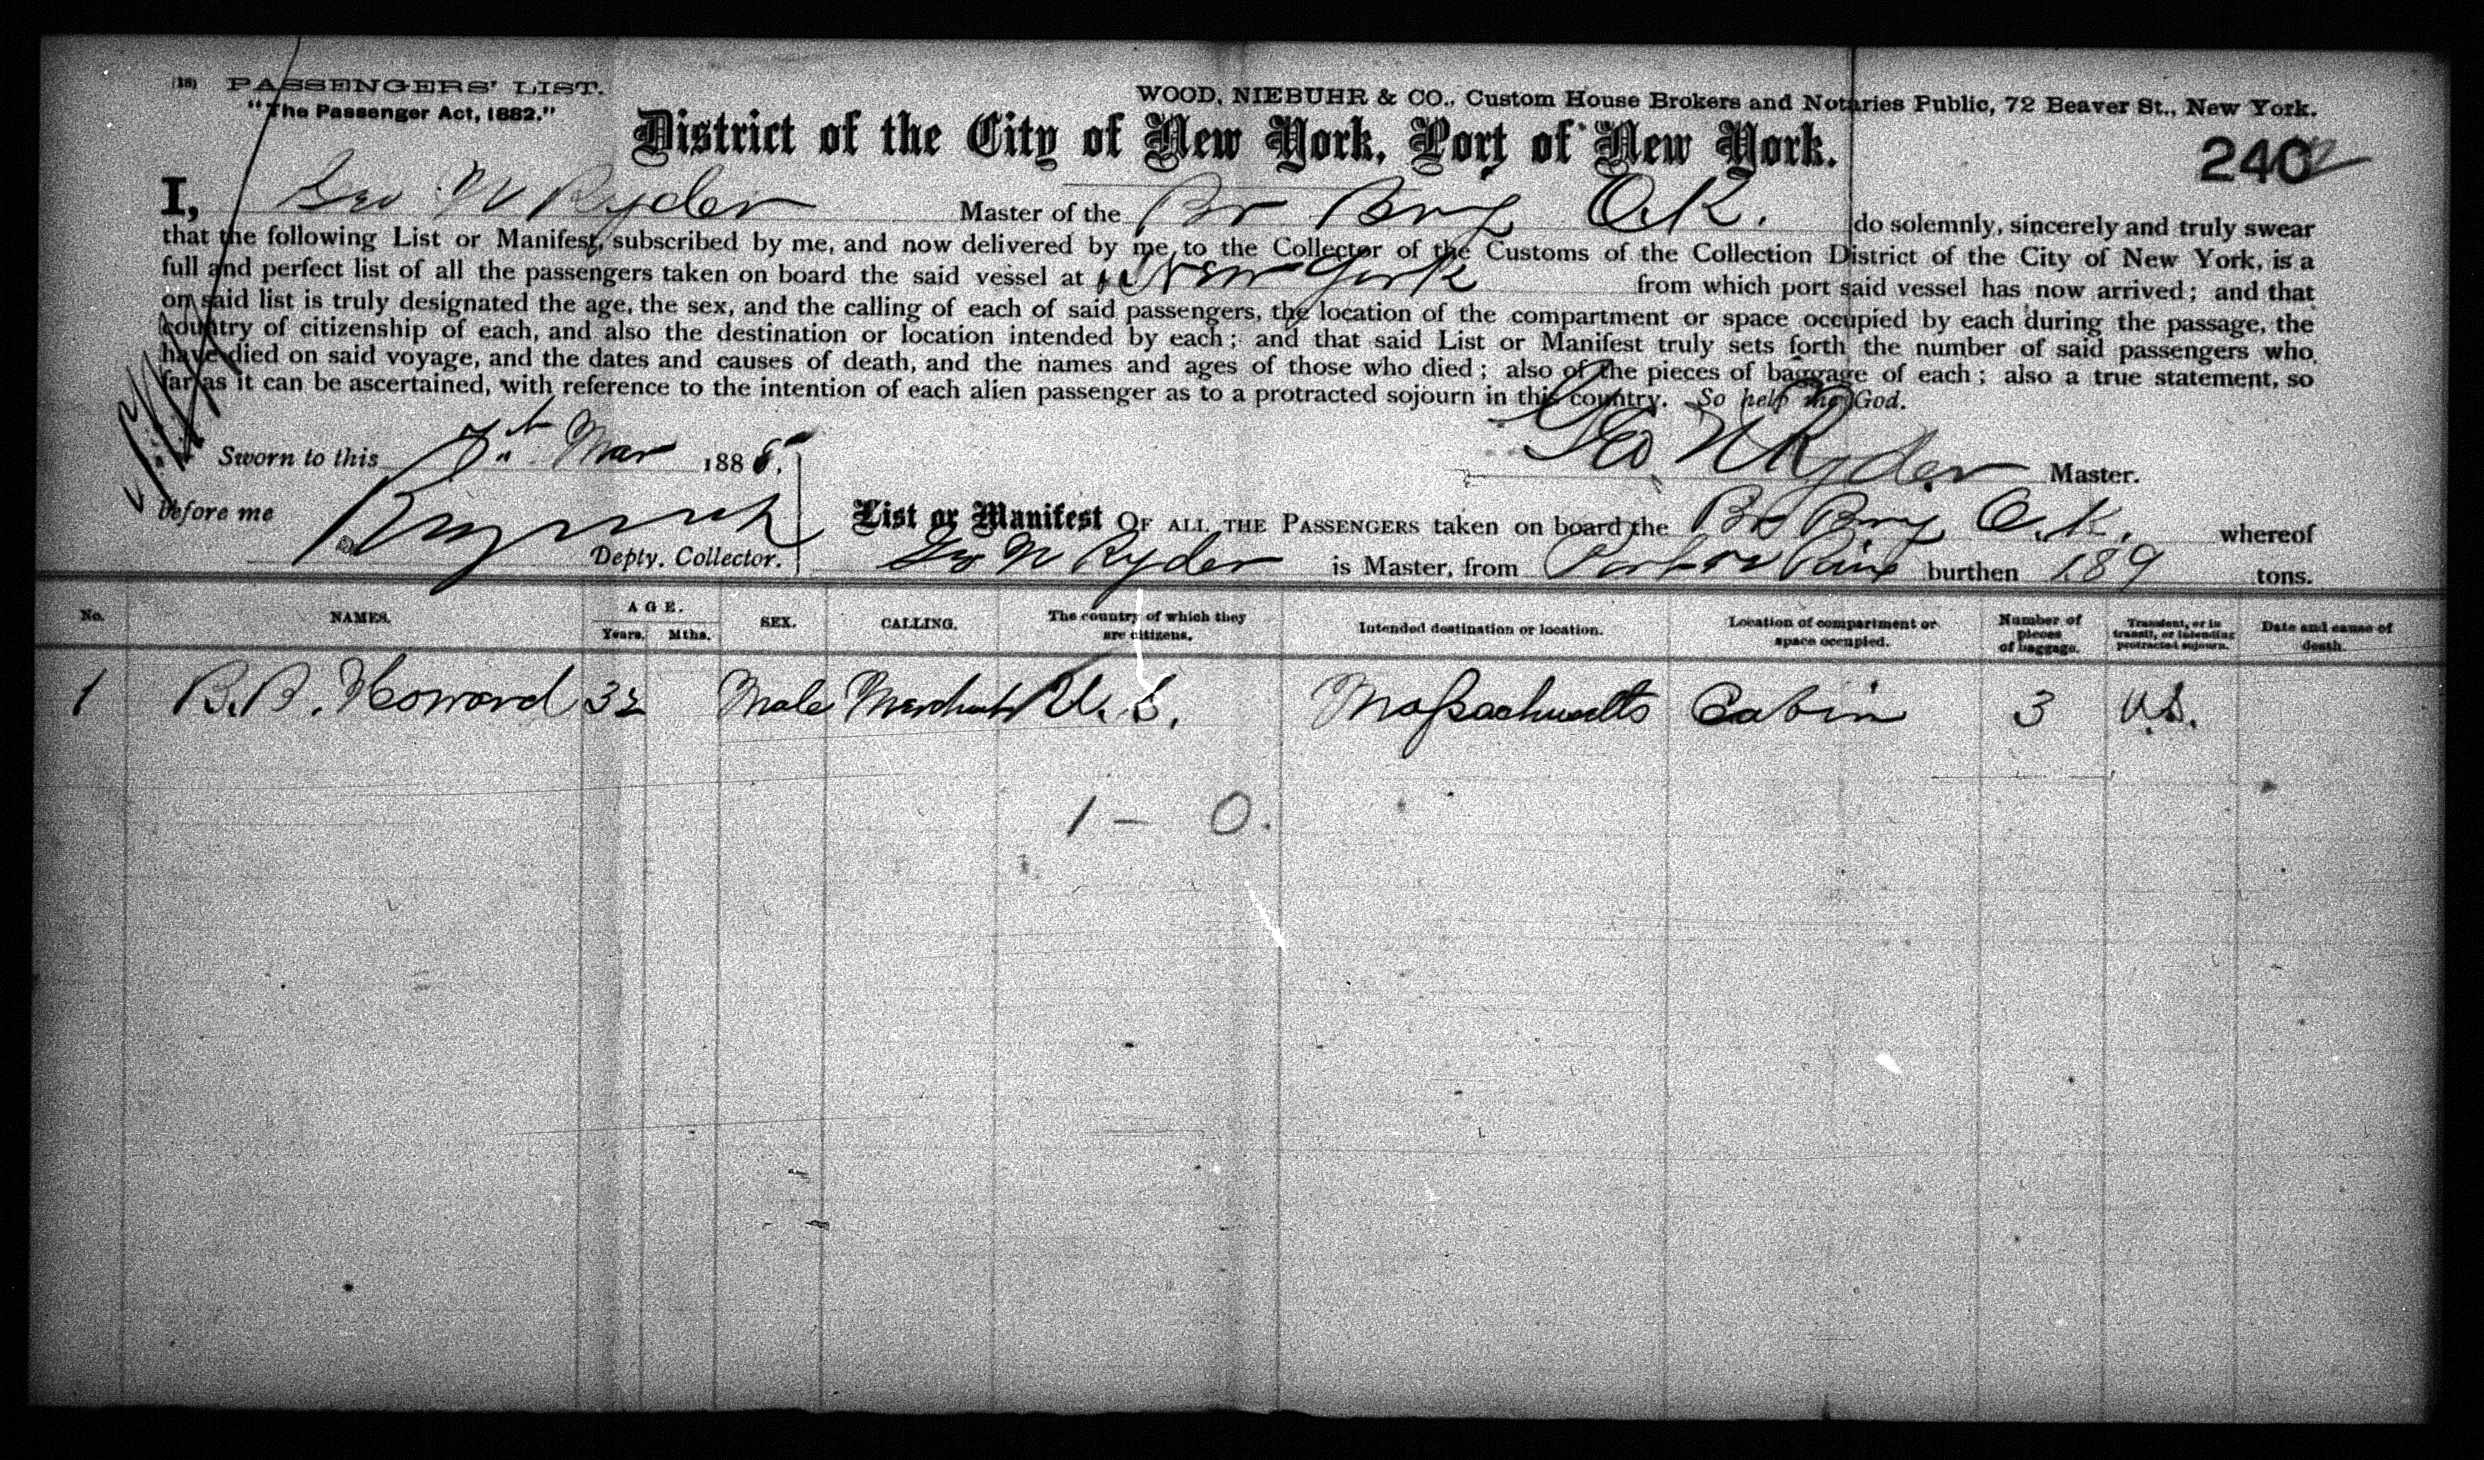 (18) PASSENGERS' LIST.
"The Passenger Act, 1882."
WOOD, NIEBUHR & CO., Custom House Brokers and Notaries Public, 72 Beaver St., New York.
District of the City of New York, Port of New York.
240
I, Geo W Ryder Master of the Br Brig O.K. do solemnly, sincerely and truly swear
that the following List or Manifest, subscribed by me, and now delivered by me to the Collector of the Customs of the Collection District of the City of New York, is a
full and perfect list of all the passengers taken on board the said vessel at New York from which port said vessel has now arrived; and that
on said list is truly designated the age, the sex, and the calling of each of said passengers, the location of the compartment or space occupied by each during the passage, the
country of citizenship of each, and also the destination or location intended by each; and that said List or Manifest truly sets forth the number of said passengers who
have died on said voyage, and the dates and causes of death, and the names and ages of those who died; also of the pieces of baggage of each; also a true statement, so
far as it can be ascertained, with reference to the intention of each alien passenger as to a protracted sojourn in this country. So help me God.
Sworn to this 7th Mar 1885.
Geo W Ryder Master.
before me
Depty. Collector.
List or Manifest OF ALL THE PASSENGERS taken on board the Br Brig O.K. whereof
Geo W Ryder is Master, from Port au Paine burthen 189 tons.
No. NAMES. AGE. Years. Mths. SEX. CALLING. The country of which they are citizens. Intended destination or location. Location of compartment or space occupied. Number of pieces of baggage. Transient, or in transit, or intending protracted sojourn. Date and cause of death.
1 B.B. Howard 32 Male Merchant U.S. Massachusetts Cabin 3 U.S.
1 - 0.